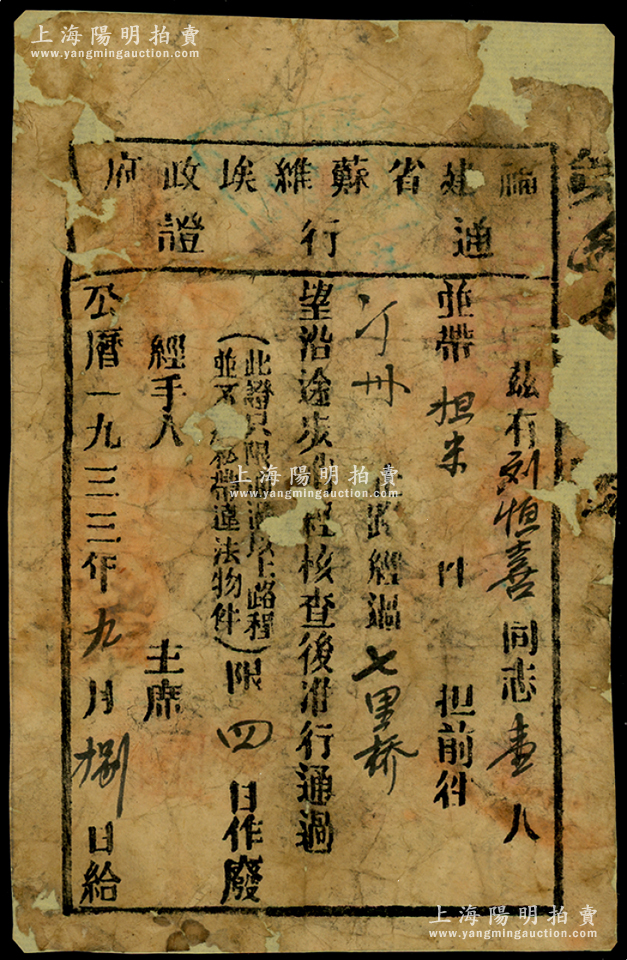 上海陽明拍賣
www.yangmingauction.com
上海陽明拍賣
www.yangmingauction.com
福建省蘇維埃政府
通行證
茲有刘恒喜同志壹人
並帶担米 担前往
汀州 此路經過七里桥
望沿途步 核查後准行通過
(此證只限通過以上路程
並不 私帶違法物件)限四日作廢
經手人 主席
公曆一九三三年九月捌日給
上海陽明拍賣
www.yangmingauction.com